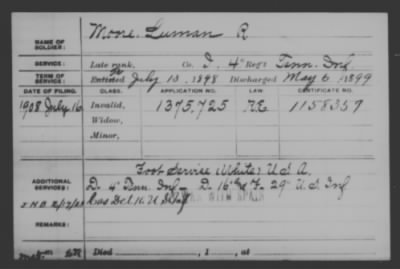 NAME OF SOLDIER: Moore Luman R
SERVICE: Late rank, Co. D, 4" Reg't Tenn. Inf
TERM OF SERVICE: Enlisted July 13, 1898 Discharged May 6, 1899
DATE OF FILING. CLASS. APPLICATION NO. LAW. CERTIFICATE NO.
1908 July 16 Invalid, 1375,725 1158357
Widow,
Minor,
ADDITIONAL SERVICES: Service U.S.A.
D. 4" Tenn. Inf 16" 29" U.S. Inf
WAR WITH SPAIN
REMARKS:
Died , 1 , at